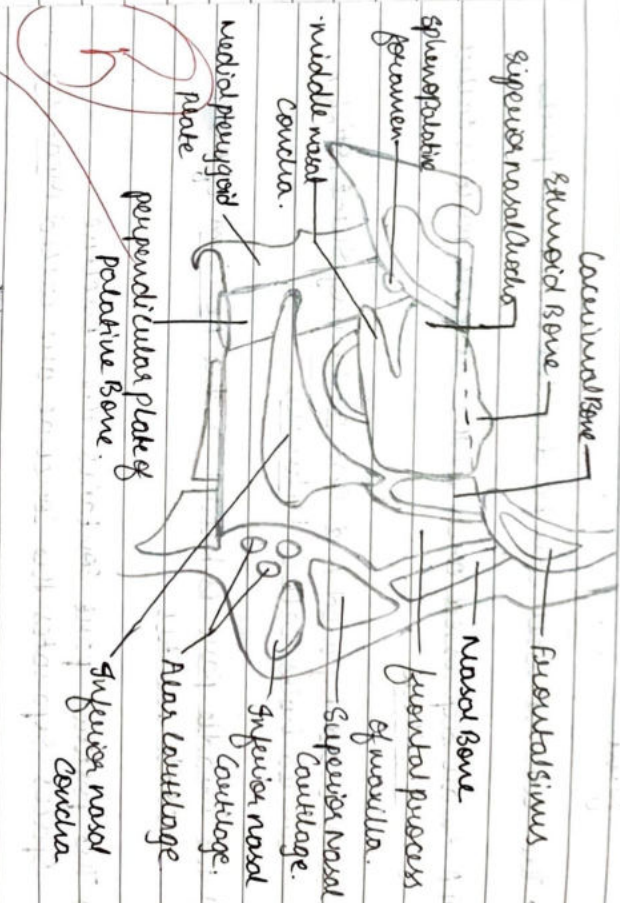 Lacrimal Bone
Ethmoid Bone
Superior nasal Chocha
Sphenopalatine
foramen
middle nasal
Concha.
medial pterygoid
Plate
perpendicular plate of
palatine Bone.
Frontal Sinus
Nasal Bone
frontal process
of maxilla.
Superior Nasal
Cartilage.
Inferior nasal
Cartilage.
Alar Cartilage
Inferior nasal
Concha